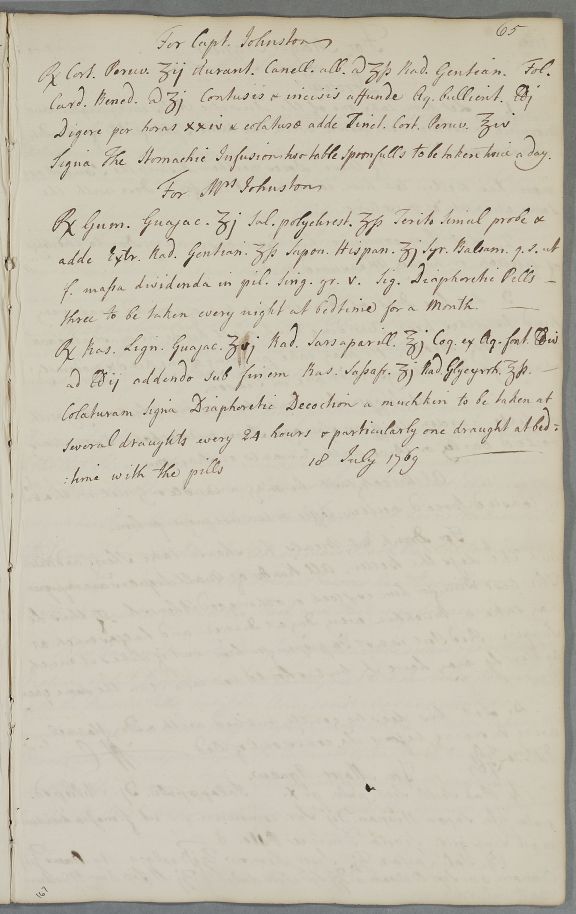 65
For Capt. Johnston
℞ Cort. Peruv. ʒij Aurant. Canell. alb. a ʒß Rad. Gentian. Fol.
Card. Bened. a ʒj Contusis & incisis affunde Aq. bullient. ℔j
Digere per horas xxiv & colaturæ adde Tinct. Cort. Peruv. ʒiv
Signa The Stomachic Infusion two table spoonfulls to be taken twice a day.
For Mrs Johnston
℞ Gum. Guajac. ʒj Sal. polychrest. ʒß Terito simul probe &
adde Extr. Rad. Gentian. ʒß Sapon. Hispan. ʒj Syr. Balsam. q. s. ut
f. massa dividenda in pil. sing. gr. v. Sig. Diaphoretic Pills
three to be taken every night at bedtime for a Month.
℞ Ras. Lign. Guajac. Rad. Sarsaparill. ʒj Coq. ex Aq. font. ℔iv
ad ℔ij addendo sub finem Ras. Sassaf. ʒj Rad. Glycyrrh. ʒß.
Colaturam Signa Diaphoretic Decoction a muchkin to be taken at
several draughts every 24 hours & particularly one draught at bed=
:time with the pills 18 July 1769
167